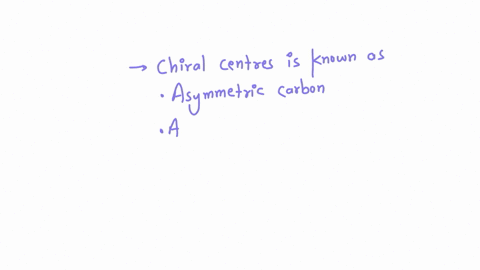 → Chiral centres is known as
• Asymmetric carbon
• A